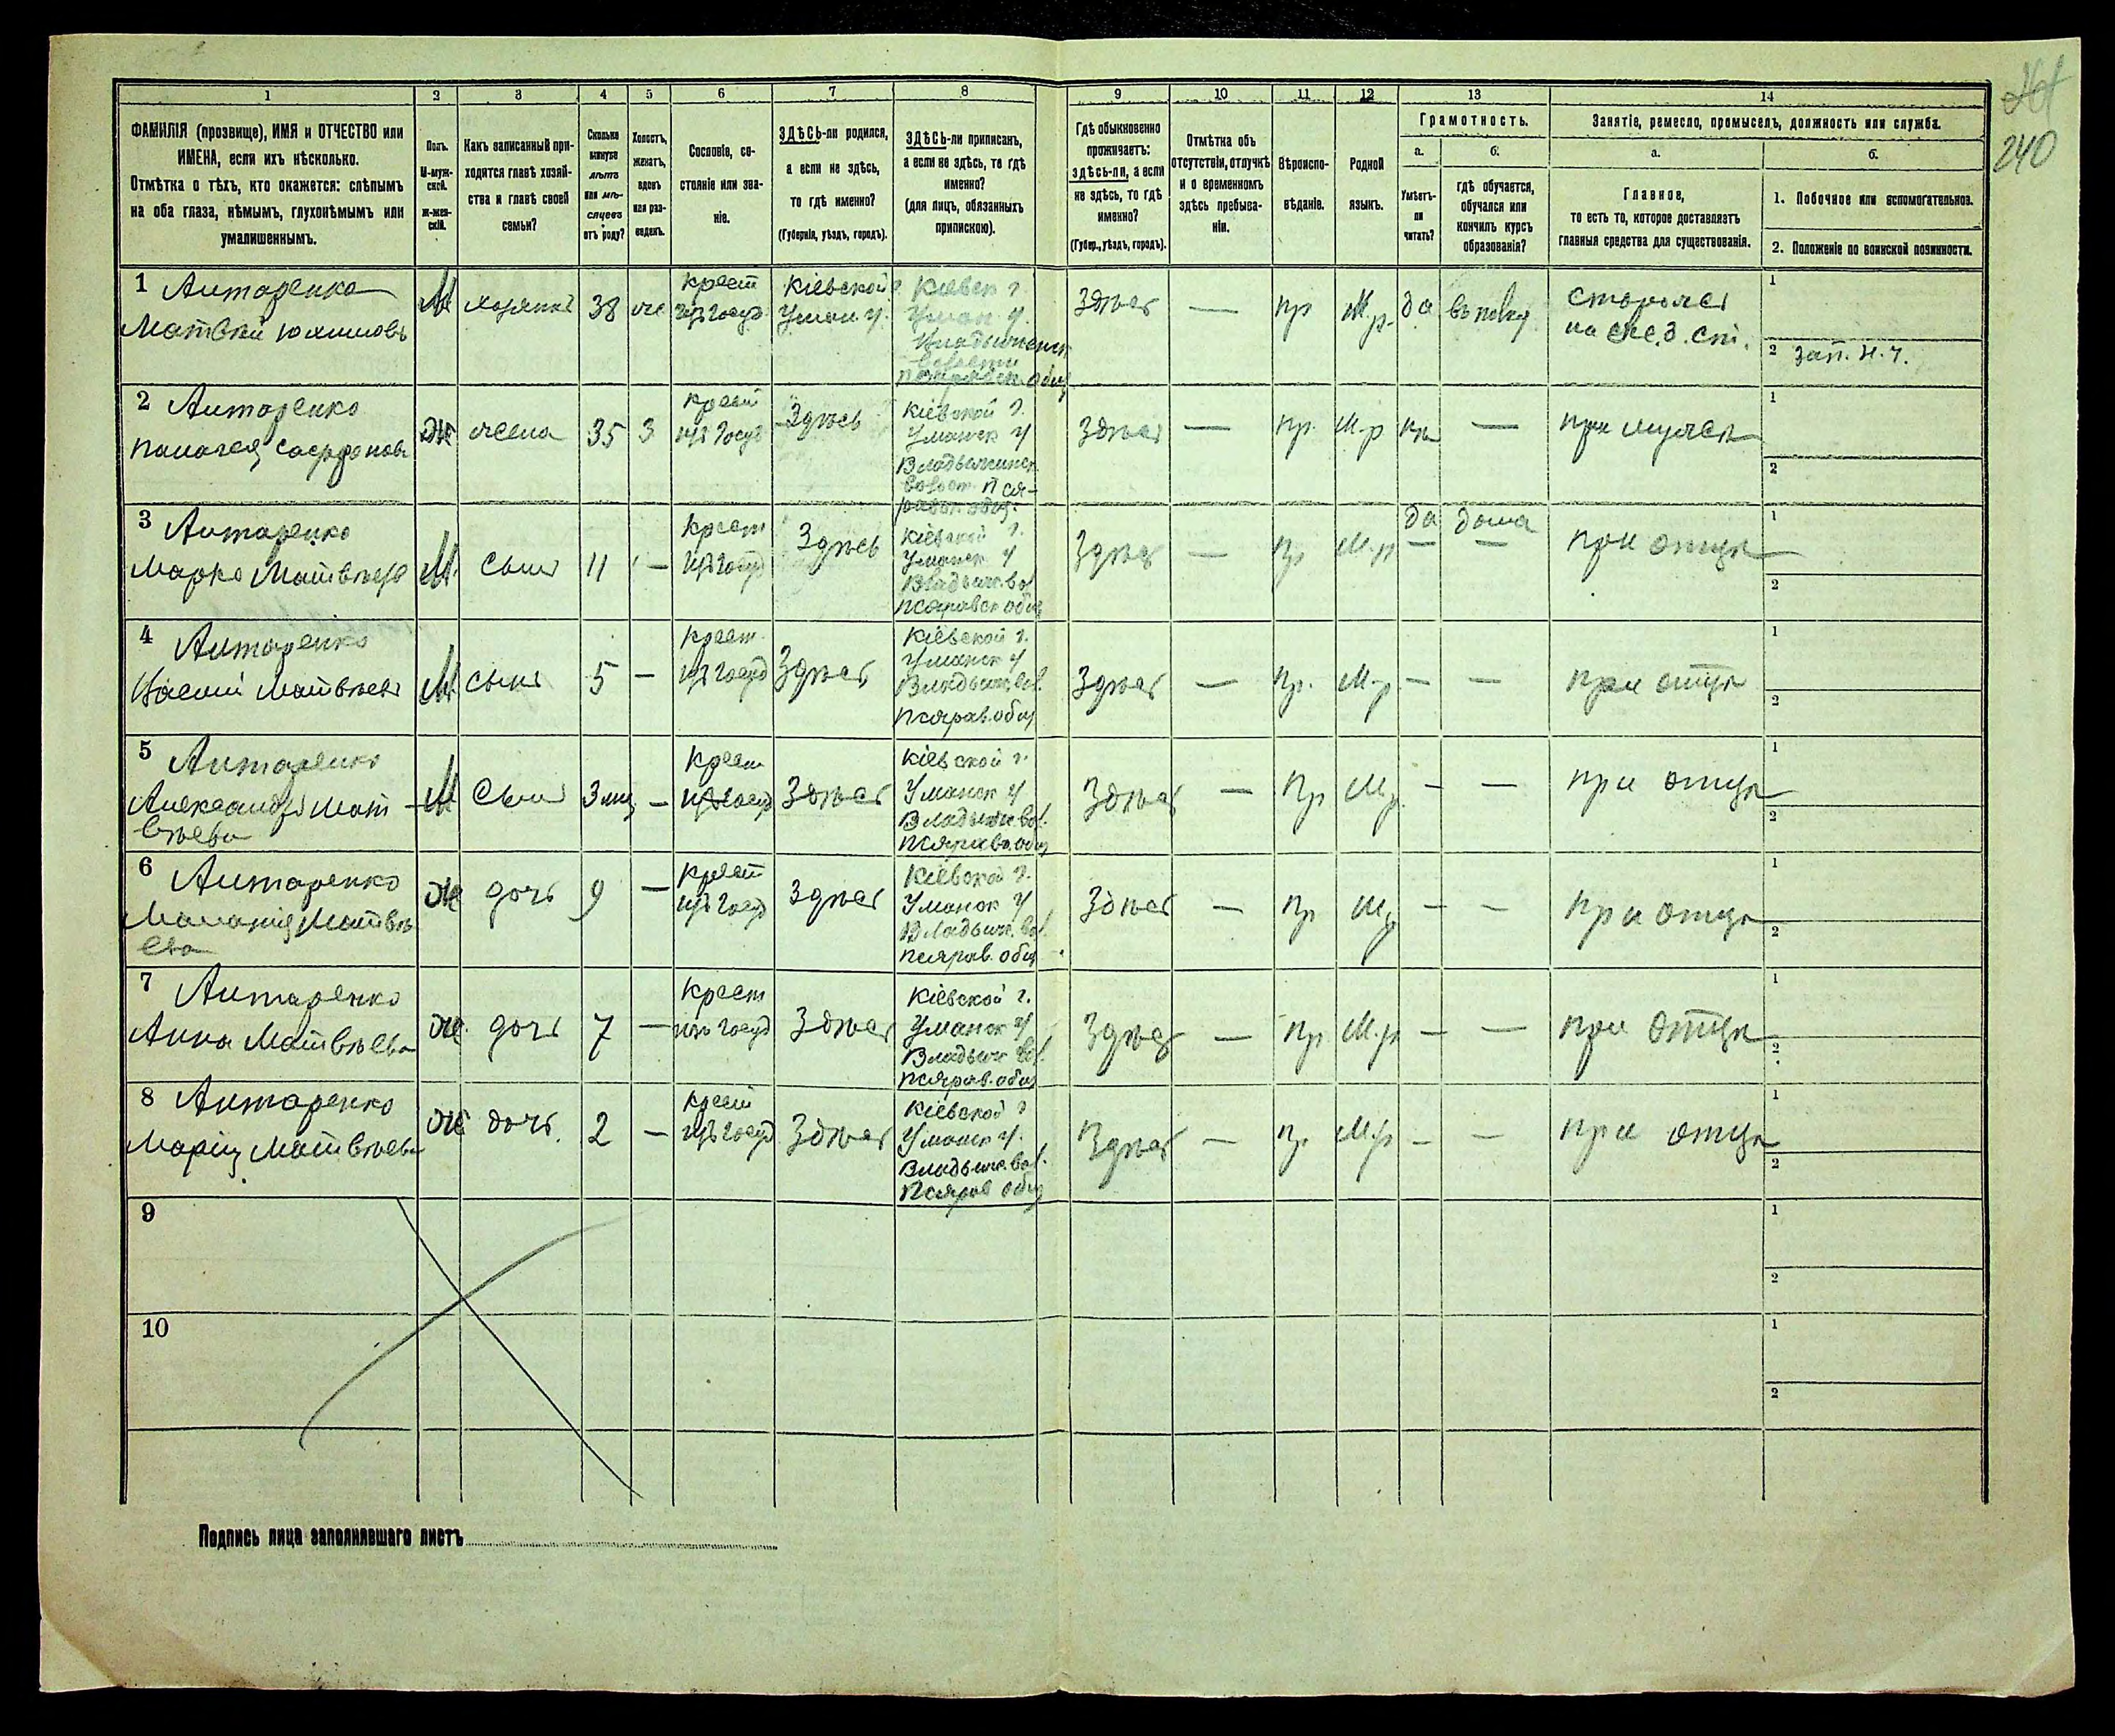 240
1 2 3 4 5 6 7 8 9 10 11 12 13 14
ФАМИЛІЯ (прозвище), ИМЯ и ОТЧЕСТВО или
ИМЕНА, если ихъ нѣсколько.
Отмѣтка о тѣхъ, кто окажется: слѣпымъ
на оба глаза, нѣмымъ, глухонѣмымъ или
умалишеннымъ.
Полъ.
М-муж-
ской.
Ж-жен-
скій.
Какъ записанный при-
ходится главѣ хозяй-
ства и главѣ своей
семьи?
Сколько
минуло
лѣтъ
или мѣ-
сяцевъ
отъ роду?
Холостъ,
женатъ,
вдовъ
или раз-
веденъ.
Сословіе, со-
стояніе или зва-
ніе.
ЗДѢСЬ-ли родился,
а если не здѣсь,
то гдѣ именно?
(Губернія, уѣздъ, городъ).
ЗДѢСЬ-ли приписанъ,
а если не здѣсь, то гдѣ
именно?
(для лицъ, обязанныхъ
припискою).
Гдѣ обыкновенно
проживаетъ:
здѣсь-ли, а если
не здѣсь, то гдѣ
именно?
(Губер., уѣздъ, городъ).
Отмѣтка объ
отсутствіи, отлучкѣ
и о временномъ
здѣсь пребыва-
ніи.
Вѣроиспо-
вѣданіе.
Родной
языкъ.
Грамотность.
а.
Умѣетъ-
ли
читать?
б.
гдѣ обучается,
обучался или
кончилъ курсъ
образованія?
Занятіе, ремесло, промыселъ, должность или служба.
а.
Главное,
то есть то, которое доставляетъ
главныя средства для существованія.
б.
1. Побочное или вспомогательное.
2. Положеніе по воинской повинности.
1 Антаренко
Матвѣй
М 38
крест
изъ госуд
Кіевской г
Уман. у.
Кіевск г
Уман. у.
волости
общ
здѣсь — пр М.р. да въ полку
на же.д. ст.
1
2 зап. н. ч.
2 Антаренко
Ж жена 35 З
крест
изъ госуд
Здѣсь
Кіевской г.
Уманск у
Владычинск
волост. Пся-
равск. общ.
здѣсь — пр. М.р — при мужѣ
1
2
3 Антаренко
Марко Матвѣевъ
М сынъ 11 —
крест
изъ госуд
Здѣсь
Кіевской г.
Уманск у
Владыч. вол
Псяравск общ
Здѣсь — пр М.р да дома при отцѣ
1
2
4 Антаренко
Матвѣевъ
М сынъ 5 —
крест.
изъ госуд
Здѣсь
Кіевской г.
Уманск у
Владыч. вол.
Псярав. общ
Здѣсь — пр. М.р — — при отцѣ
1
2
5 Антаренко
Александръ Мат-
вѣевъ
М сынъ 3 мц —
Крест
изъ госуд
Здѣсь
Кіевской г.
Уманск у
Владыч. вол.
Псяравс. общ
Здѣсь — пр М.р. — — при отцѣ
1
2
6 Антаренко
Маланія Матвѣ
ева
Ж дочь 9 —
крест
изъ госуд
Здѣсь
Кіевской г.
Уманск у
Владыч. вол.
Псярав. общ
Здѣсь — пр М.р — — при отцѣ
1
2
7 Антаренко
Анна Матвѣева
Ж дочь 7 —
крест
изъ госуд
Здѣсь
Кіевской г.
Уманск у
Владыч вол.
Псярав. общ
Здѣсь — пр М.р — — при отцѣ
1
2
8 Антаренко
Марія Матвѣева
Ж дочь. 2 —
крест
изъ госуд
Здѣсь
Кіевской г
Уманск у.
Владыч. вол.
Псярав общ
Здѣсь — пр М.р — — при отцѣ
1
2
9
1
2
10
1
2
Подпись лица заполнявшаго листъ